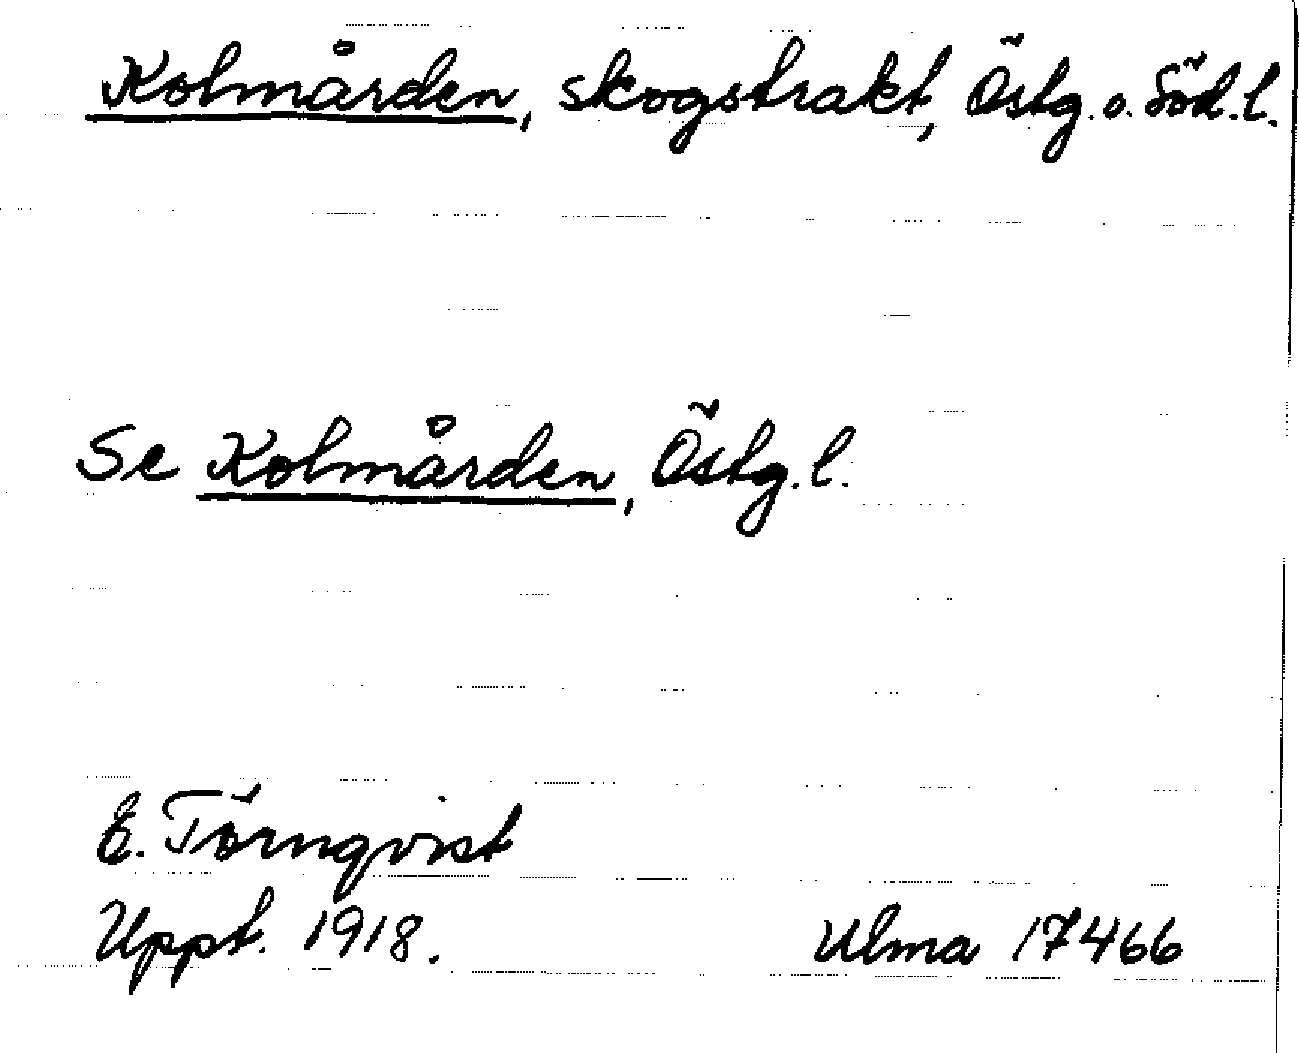 Kolmården, skogstrakt, Östg. o. Söd.l.
Se Kolmården, Östg.l.
E. Törnqvist
Uppt. 1918.
Ulma 17466